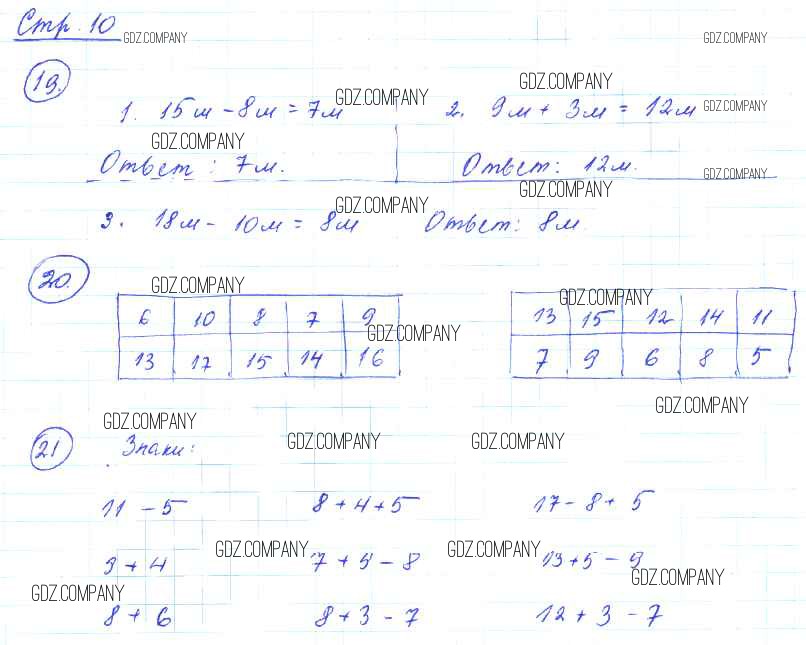 Стр. 10
GDZ.COMPANY GDZ.COMPANY
19.
GDZ.COMPANY GDZ.COMPANY
1. 15м - 8м = 7м 2. 9м + 3м = 12м GDZ.COMPANY
GDZ.COMPANY
Ответ: 7м. Ответ: 12м.
GDZ.COMPANY GDZ.COMPANY
GDZ.COMPANY
3. 18м - 10м = 8м Ответ: 8м
20.
GDZ.COMPANY GDZ.COMPANY
6 10 8 7 9 13 15 12 14 11
GDZ.COMPANY
13 17 15 14 16 7 9 6 8 5
GDZ.COMPANY
GDZ.COMPANY
21 Знаки: GDZ.COMPANY GDZ.COMPANY
11 - 5 8 + 4 + 5 17 - 8 + 5
GDZ.COMPANY GDZ.COMPANY
9 + 4 7 + 5 - 8 13 + 5 - 9
GDZ.COMPANY
GDZ.COMPANY
8 + 6 8 + 3 - 7 12 + 3 - 7